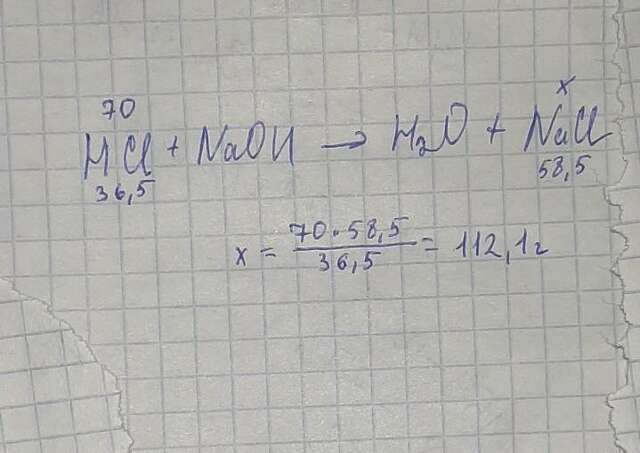 70 x
HCl + NaOH → H₂O + NaCl
36,5 58,5
x = 70·58,5/36,5 = 112,1г